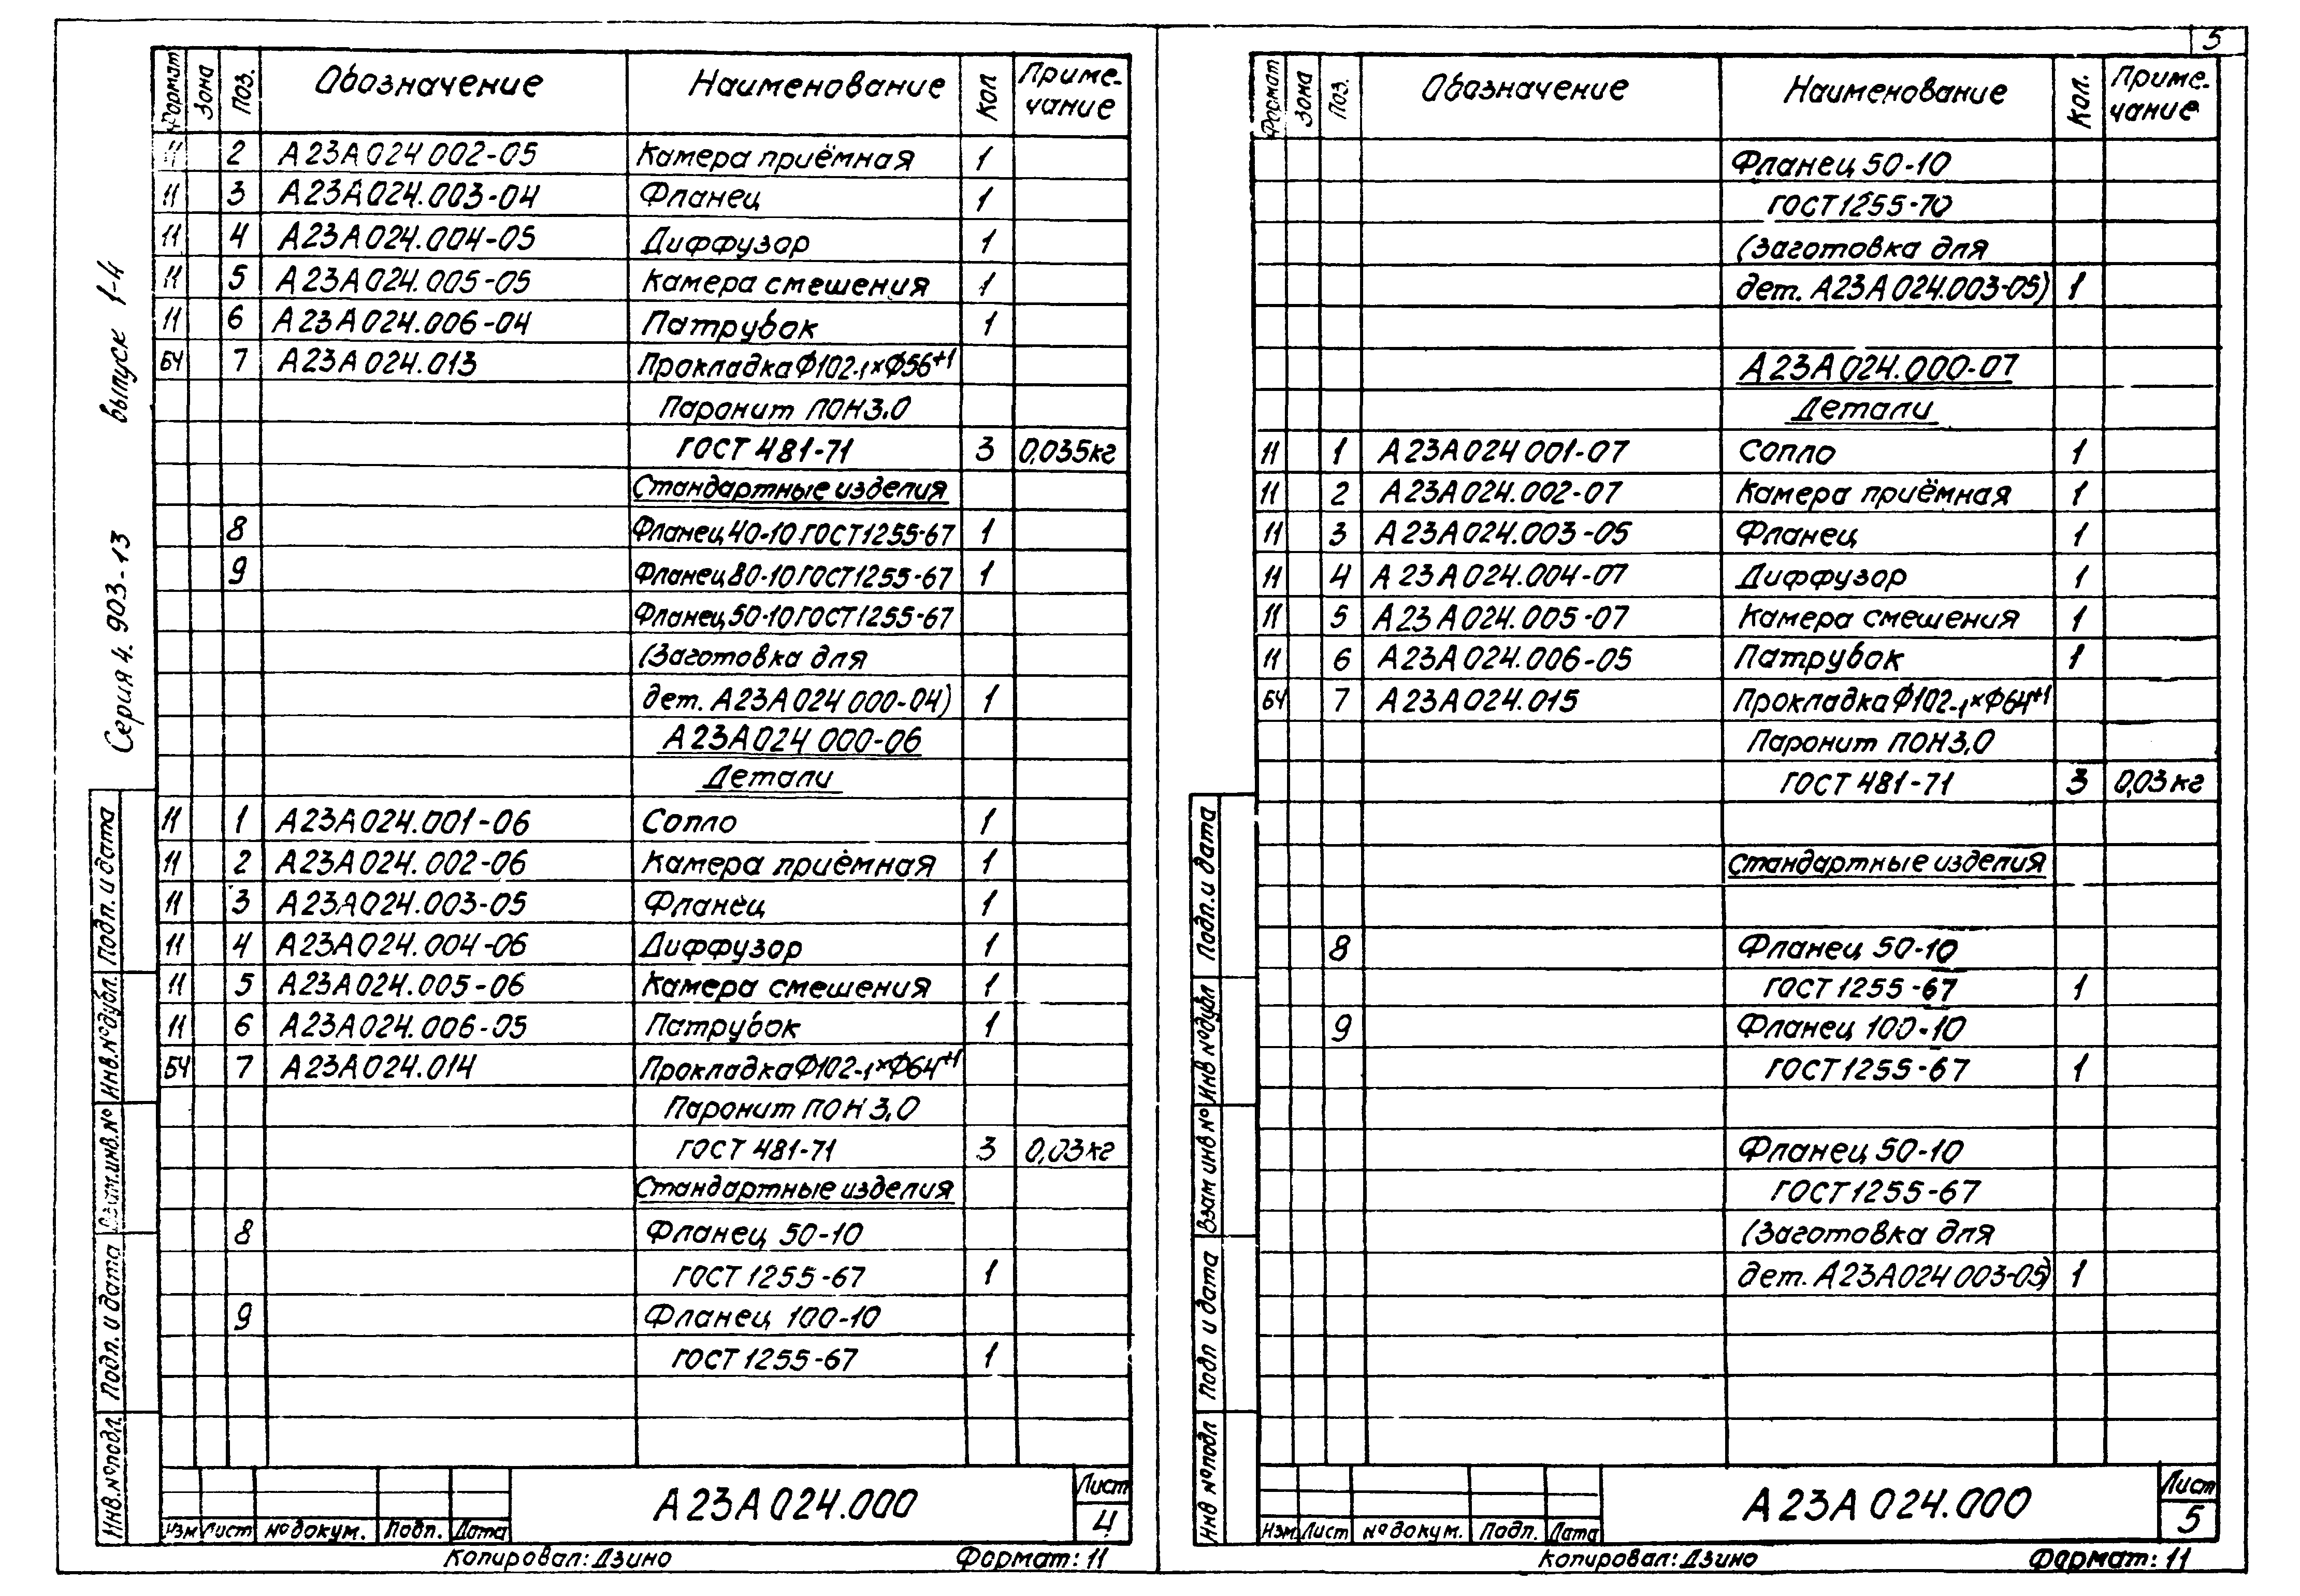 5
Серия 4.903-13 выпуск 1-4
Формат Зона Поз. Обозначение Наименование Кол Приме-
чание
11 2 А23А024 002-05 Камера приёмная 1
11 3 А23А024.003-04 Фланец 1
11 4 А23А024.004-05 Диффузор 1
11 5 А23А024.005-05 Камера смешения 1
11 6 А23А024.006-04 Патрубок 1
БЧ 7 А23А024.013 Прокладка Ф102-1×Ф56+1
Паронит ПОН3,0
ГОСТ 481-71 3 0,035кг
Стандартные изделия
8 Фланец 40-10 ГОСТ1255-67 1
9 Фланец 80-10 ГОСТ1255-67 1
Фланец 50-10 ГОСТ1255-67
(Заготовка для
дет. А23А024 000-04) 1
А23А024 000-06
Детали
11 1 А23А024.001-06 Сопло 1
11 2 А23А024.002-06 Камера приёмная 1
11 3 А23А024.003-05 Фланец 1
11 4 А23А024.004-06 Диффузор 1
11 5 А23А024.005-06 Камера смешения 1
11 6 А23А024.006-05 Патрубок 1
БЧ 7 А23А024.014 Прокладка Ф102-1×Ф64+1
Паронит ПОН 3,0
ГОСТ 481-71 3 0,03кг
Стандартные изделия
8 Фланец 50-10
ГОСТ 1255-67 1
9 Фланец 100-10
ГОСТ 1255-67 1
Инв.№подл. Подп. и дата Взам.инв.№ Инв.№дубл. Подп. и дата
Изм Лист №докум. Подп. Дата
А23А024.000
Лист
4
Копировал: Дзино Формат: 11
Формат Зона Поз. Обозначение Наименование Кол. Приме-
чание
Фланец 50-10
ГОСТ1255-70
(Заготовка для
дет. А23А024.003-05) 1
А23А024.000-07
Детали
11 1 А23А024 001-07 Сопло 1
11 2 А23А024.002-07 Камера приёмная 1
11 3 А23А024.003-05 Фланец 1
11 4 А23А024.004-07 Диффузор 1
11 5 А23А024.005-07 Камера смешения 1
11 6 А23А024.006-05 Патрубок 1
БЧ 7 А23А024.015 Прокладка Ф102-1×Ф64+1
Паронит ПОН3,0
ГОСТ 481-71 3 0,03кг
Стандартные изделия
8 Фланец 50-10
ГОСТ 1255-67 1
9 Фланец 100-10
ГОСТ1255-67 1
Фланец 50-10
ГОСТ1255-67
(Заготовка для
дет. А23А024 003-05) 1
Инв №подл Подп и дата Взам инв № Инв №дубл Подп. и дата
Изм Лист №докум. Подп. Дата
А23А024.000
Лист
5
Копировал: Дзино Формат: 11